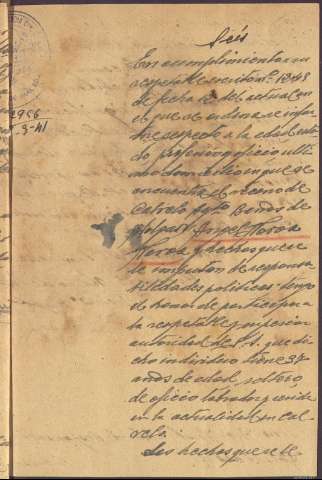 Seis
En cumplimiento a su
respetable escrito nº. 1848
de fecha 12 del actual en
el que se ordena se infor
me respecto a la edad, esta
do, profesion u oficio, ulti
mo domicilio en que se
encuentra el vecino de
Calvelo Aytº Baños de
Molgas Angel
y hechos que se
le imputan de responsa
bilidades politicas tengo
el honor de participar a
la respetable y superior
autoridad de V.S. que di
cho individuo tiene 37
años de edad, soltero,
de oficio labrador y reside
en la actualidad en Cal
velo.
Los hechos que se le